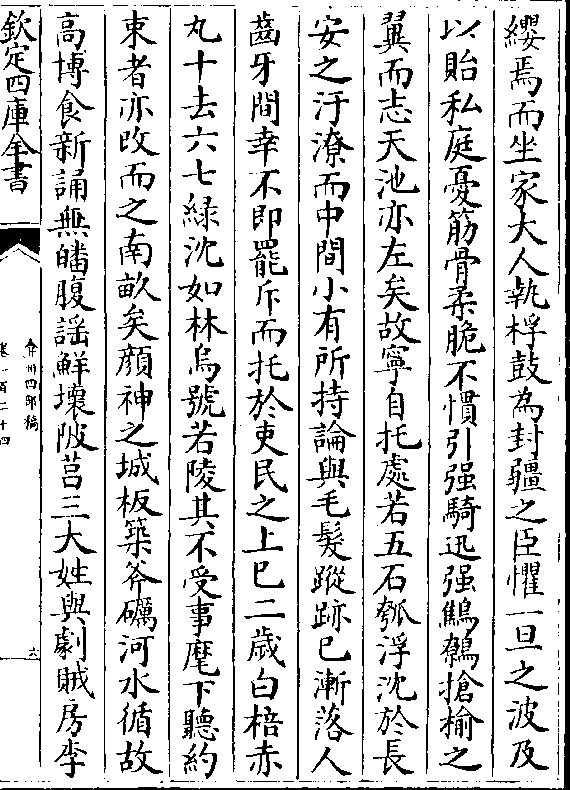 纓焉而坐家大人執桴鼓為封疆之臣懼一旦之波及
以貽私庭憂筋骨柔脆不慣引强騎迅强鷦鷯搶榆之
翼而志天池亦左矣故寧自托處若五石瓠浮沈於長
安之汙潦而中間小有所持論與毛髮蹤跡已漸落人
齒牙間幸不即罷斥而托於吏民之上巳二歲白棓赤
丸十去六七綠沈如林烏號若陵其不受事麾下聽約
束者亦改而之南畝矣顔神之城板築斧礪河水循故
高博食新誦無皤腹謡鮮壞陂莒三大姓與劇賊房李
欽定四庫全書
弇州四部稿
卷一百二十四
六